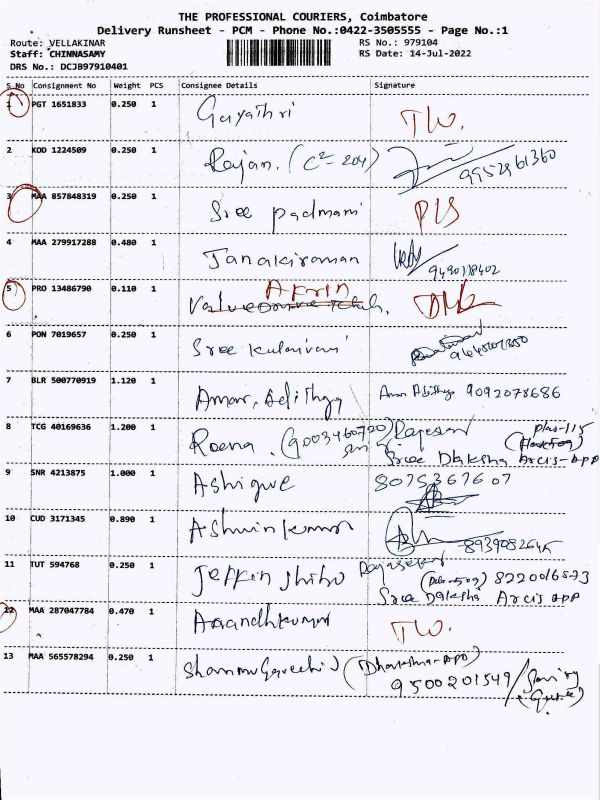 THE PROFESSIONAL COURIERS, Coimbatore
Delivery Runsheet - PCM - Phone No.:0422-3505555 - Page No.:1
Route: VELLAKINAR RS No.: 979104
Staff: CHINNASAMY RS Date: 14-Jul-2022
DRS No.: DCJB97910401
S No Consignment No Weight PCS Consignee Details Signature
1 PGT 1651833 0.250 1 Gayathri TW.
2 KOD 1224509 0.250 1 Rajan. (C2-204) 9952961360
3 MAA 857848319 0.250 1 Sree padmani PLS
4 MAA 279917288 0.480 1 Janakiraman 9490118402
5 PRO 13486790 0.110 1
6 PON 7019657 0.250 1 Sree
7 BLR 500770919 1.120 1 Amar, Adithya Amar Adithya 9092078686
8 TCG 40169636 1.200 1 Reena. (9003460720)
Sree Daksha Arcis-App
9 SNR 4213875 1.000 1 Ashique 8075367607
10 CUD 3171345 0.890 1 Ashwin kumar 8939082645
11 TUT 594768 0.250 1 Jeffin shibu
Sree Daksha Arcis App
12 MAA 287047784 0.470 1 Anandhkumar TW.
13 MAA 565578294 0.250 1
9500201549